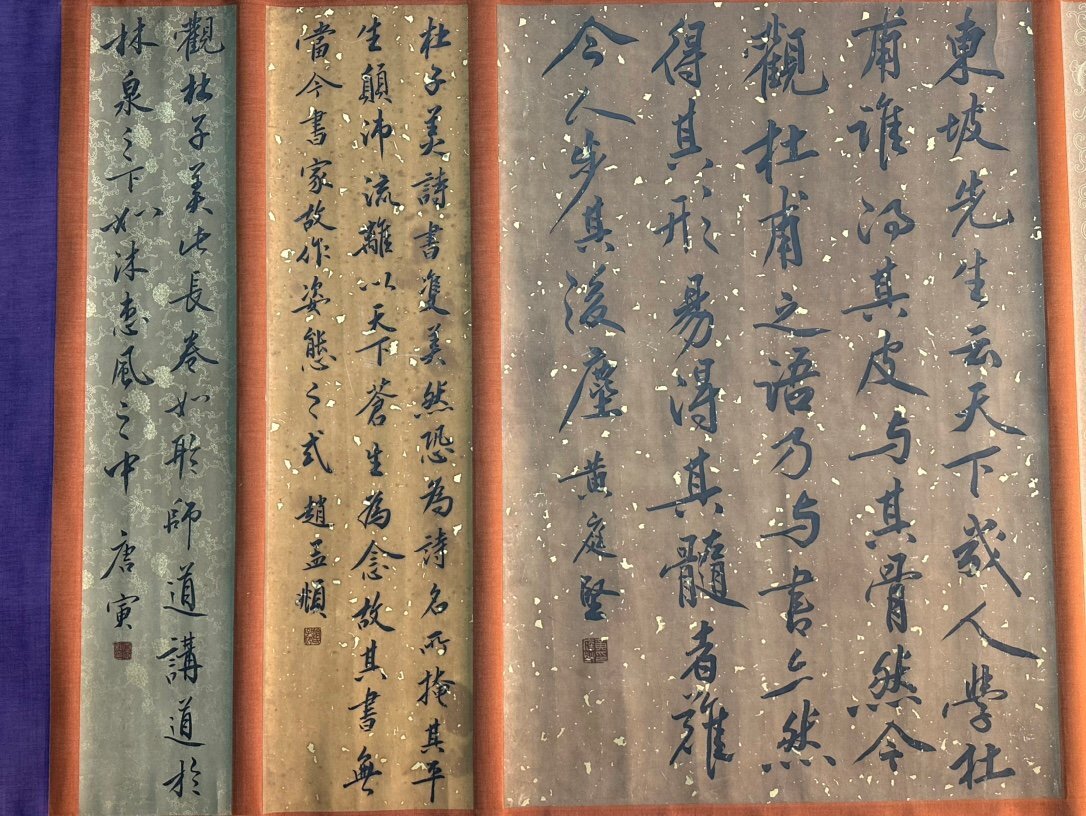 東坡先生云天下几人學杜
甫谁得其皮与其骨然今
觀杜甫之语乃与書亦然
得其形易得其髓者難
今人步其後塵 黄庭堅
杜子美詩書雙美然恐為詩名所掩其平
生顛沛流離以天下蒼生為念故其書無
當今書家故作姿態之式 趙孟頫
觀杜子美此長卷如形師道講道於
林泉之下如沐惠風之中 唐寅